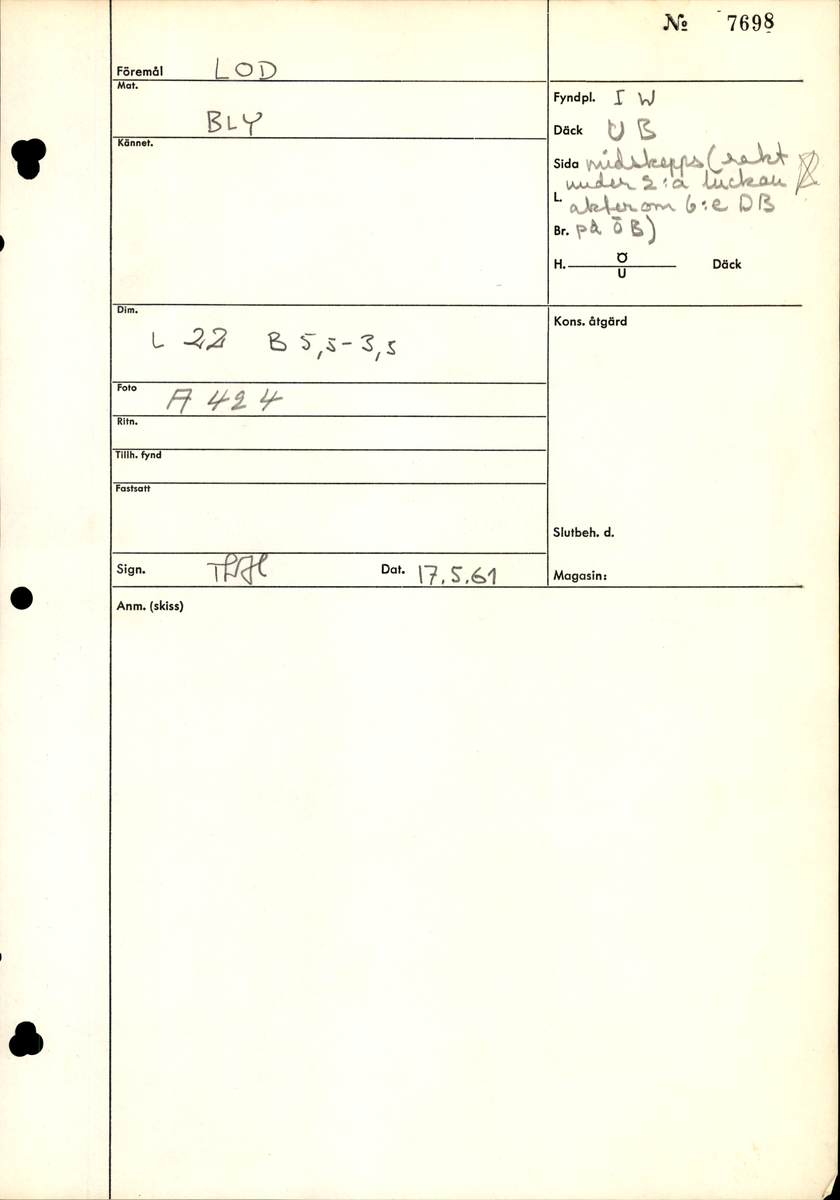 № 7698
Föremål LOD
Mat.
BLY
Kännet.
Fyndpl. I W
Däck U B
Sida midskepps (rakt
under 2:a luckan
L.
akter om 6:e DB
Br. på ÖB)
H. Ö
U
Däck
Dim.
L 22 B 5,5-3,5
Foto A 424
Ritn.
Tillh. fynd
Fastsatt
Kons. åtgärd
Slutbeh. d.
Sign. Dat. 17.5.61
Magasin:
Anm. (skiss)